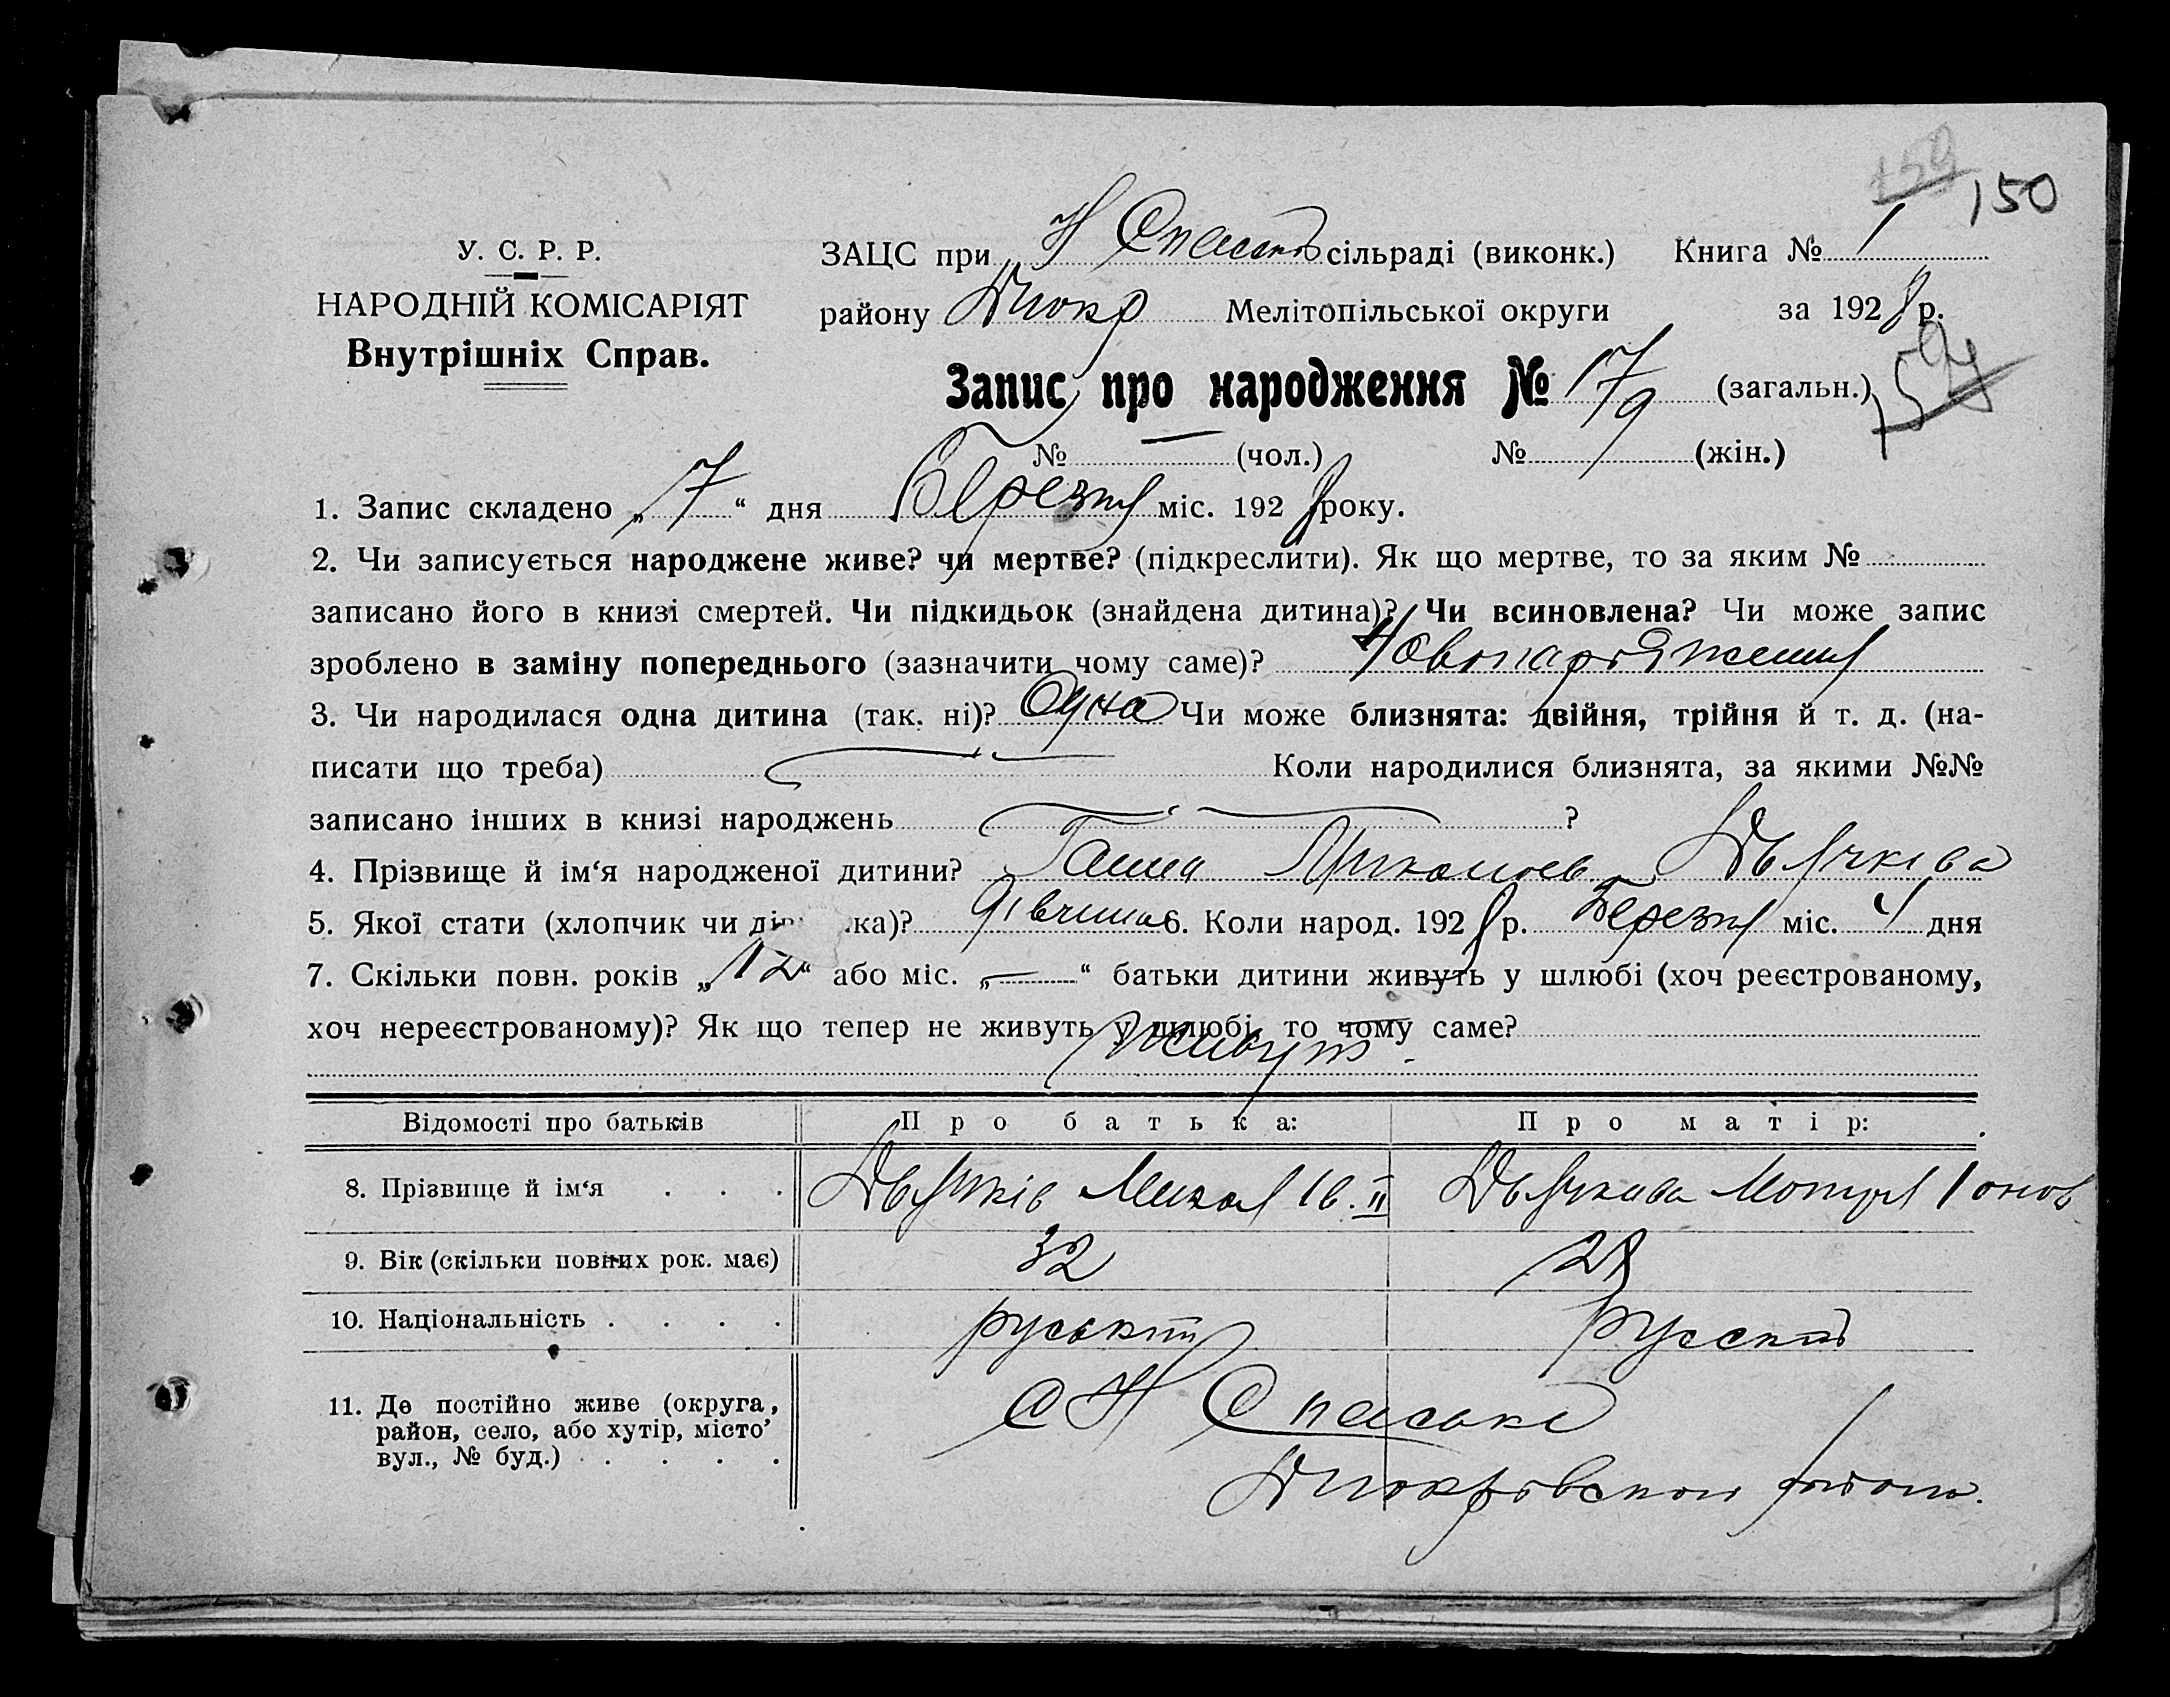 159 150
У. С. Р. Р.
НАРОДНІЙ КОМІСАРІЯТ
Внутрішніх Справ.
ЗАЦС при Н Спаській сільраді (виконк.) Книга № 1
району Покр Мелітопільської округи за 1928 р.
Запис про народження № 17 (загальн.) 159
№ — (чол.) № 9 (жін.)
1. Запис складено „7“ дня Березня міс. 1928 року.
2. Чи записується народжене живе? чи мертве? (підкреслити). Як що мертве, то за яким №
записано його в книзі смертей. Чи підкидьок (знайдена дитина)? Чи всиновлена? Чи може запис
зроблено в заміну попереднього (зазначити чому саме)?
3. Чи народилася одна дитина (так. ні)? Одна Чи може близнята: двійня, трійня й т. д. (на-
писати що треба) — Коли народилися близнята, за якими №№
записано інших в книзі народжень — ?
4. Прізвище й ім‘я народженої дитини? Ганна Миколаев Дьячкова
5. Якої стати (хлопчик чи ді ка)? дівчина 6. Коли народ. 1928 р. Березня міс. 4 дня
7. Скільки повн. років „12“ або міс. „—“ батьки дитини живуть у шлюбі (хоч реєстрованому,
хоч нереєстрованому)? Як що тепер не живуть у шлюбі, то чому саме?
Живуть
Відомості про батьків Про батька: Про матір:
8. Прізвище й ім‘я . . . Дьячків Микол Ів. II Дьячкова Мотря Іонов
9. Вік (скільки повних рок. має) 32 28
10. Національність . . . . руський русский
11. Де постійно живе (округа,
район, село, або хутір, місто’
вул., № буд.) . . . .
с Н Спаське